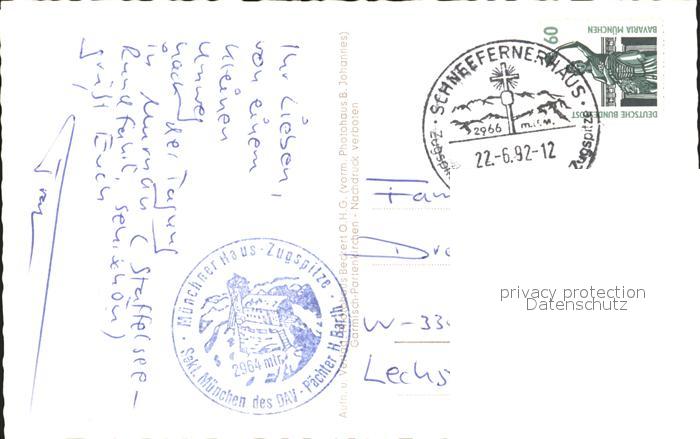 Ihr Lieben,
von einem
kleinen
Umweg
nach der Tagung
in Murnau (Staffelsee-
Rundfahrt, sehr schön)
grüßt Euch
Aufn. u. Verlag Beckert O.H.G. (vorm. Photohaus B. Johannes)
Garmisch-Partenkirchen - Nachdruck verboten
Münchner Haus - Zugspitze
2964 mtr.
Sekt. München des DAV - Pächter H. Barth
SCHNEEFERNERHAUS
2966 m.ü.M.
22.-6.92-12
Zugspitz
60
BAVARIA MÜNCHEN
DEUTSCHE BUNDESPOST
Fam
Dr
W-334
Lechs
privacy protection
Datenschutz